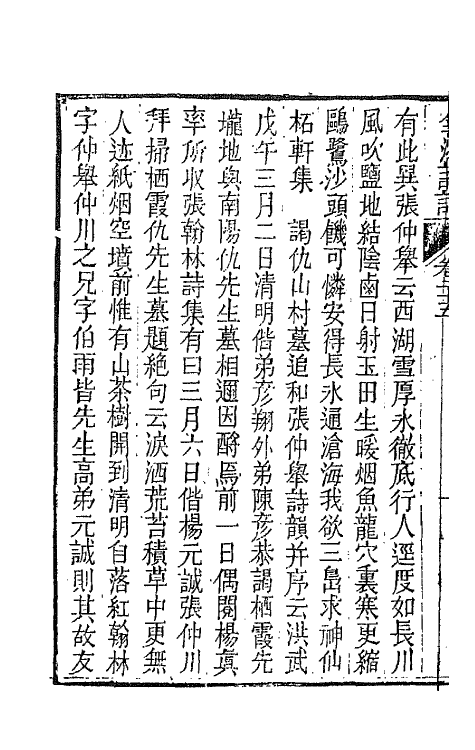 有此異張仲舉云西湖雪厚氷徹底行人逕度如長川
風吹鹽地結陰鹵日射玉田生暖烟魚龍穴裏寒更縮
鷗鷺沙頭饑可憐安得長氷通滄海我欲三島求神仙
柘軒集　謁仇山村墓追和張仲舉詩韻并序云洪武
戊午三月二日清明偕弟彥翔外弟陳彥恭謁栖霞先
壠地與南陽仇先生墓相邇因酹焉前一日偶閱楊眞
率所收張翰林詩集有曰三月六日偕楊元誠張仲川
拜掃栖霞仇先生墓題絶句云淚洒荒苔積草中更無
人迹紙烟空墳前惟有山茶樹開到清明自落紅翰林
字仲舉仲川之兄字伯雨皆先生高弟元誠則其故友